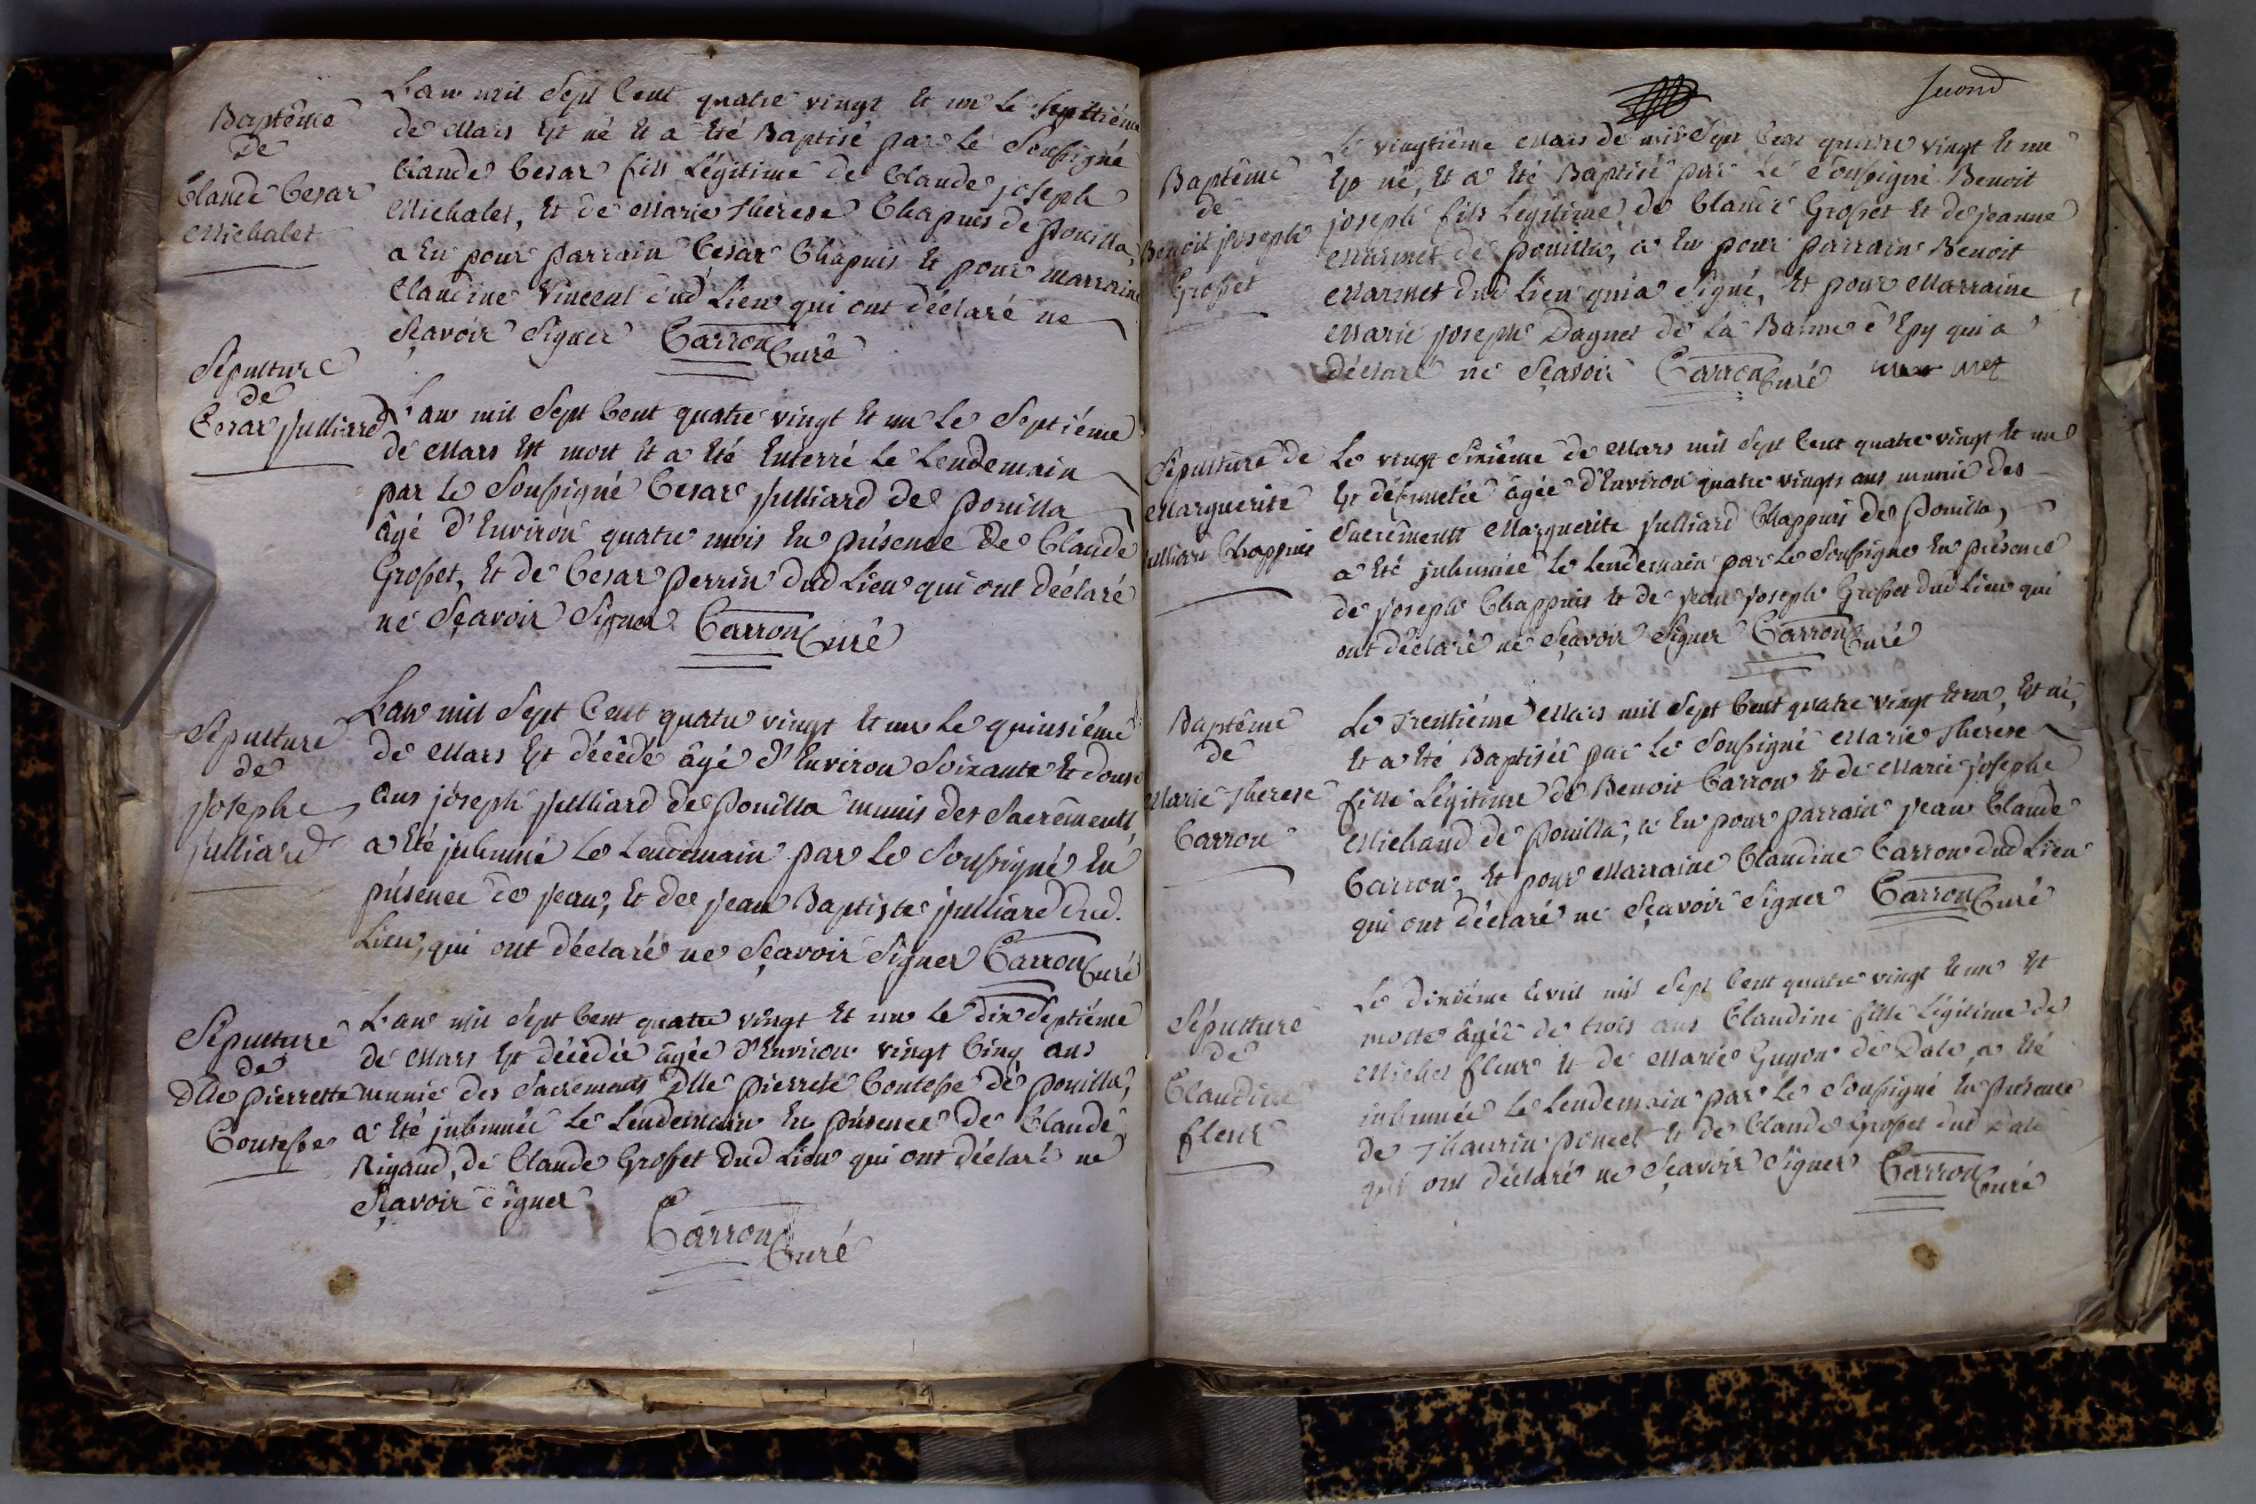 Baptême
de
Claude Cesar
Michalet
L'an mil Sept Cent quatre vingt et un le Septiéme
de Mars Est né et a Eté Baptisé par le Soussigné
Claude Cesar fils Légitime de Claude joseph
Michalet, Et de Marie therese Chapuis de pouilla,
a Eu pour parrain Cesar Chapuis Et pour marraine
Claudine Vincent dud Lieu qui ont déclaré ne
Sçavoir Signer Carron Curé
Sépulture
de
Cesar julliard
L'an mil Sept Cent quatre vingt Et un le Septiéme
de Mars Est mort et a Eté Enterré le Lendemain
par le Soussigné Cesar julliard de pouilla
âgé d'Environ quatre mois En présence de Claude
Grosset, Et de Cesar perrin dud Lieu qui ont déclaré
ne Sçavoir Signer Carron Curé
Sépulture
de
joseph
julliard
L'an mil Sept Cent quatre vingt Et un le quinsiéme
de Mars Est décédé âgé d'Environ Soixante Et douse
ans joseph julliard de pouilla munis des Sacrements,
a Eté juhumé le Lendemain par le Soussigné En
présence de jean, Et de jean Baptiste julliard dud.
Lieu, qui ont déclaré ne Sçavoir Signer Carron Curé
Sépulture
de
Dlle pierrette
Contesse
L'an mil Sept Cent quatre vingt Et un le dix Septiéme
de Mars Est décédée âgée d'Environ vingt Cinq ans
munie des Sacrements Dlle pierrete Contesse de pouilla,
a Eté juhumée le Lendemain En présence de Claude
Rigaud, de Claude Grosset dud Lieu qui ont déclaré ne
Sçavoir Signer
Carron Curé
second
Baptême
de
Benoit joseph
Grosset
Le vingtiéme Mars de mil Sept Cent quatre vingt Et un
Est né, Et a Eté Baptisé par le Soussigné Benoit
joseph fils Legitime de Claude Grosset Et de jeanne
Marmet de pouilla, a Eu pour parrain Benoit
Marmet dud Lieu qui a Signé, Et pour Marraine
Marie joseph Dagnet de La Balme d'Epy qui a
déclaré ne Sçavoir Carron Curé
Sépulture de
Marguerite
julliard Chappuis
Le vingt Sixiéme de Mars mil Sept Cent quatre vingt Et un
Est défunctée âgée d'Environ quatre vingts ans munie des
Sacrements Marguerite julliard Chappuis de pouilla,
a Eté juhumée le Lendemain par le Soussigné En présence
de joseph Chappuis Et de jean joseph Grosset dud Lieu qui
ont déclaré ne Sçavoir Signer Carron Curé
Baptême
de
Marie therese
Carron
Le trentiéme Mars mil Sept Cent quatre vingt Et un, Est né,
Et a Eté Baptisée par le Soussigné Marie therese
fille Légitime de Benoit Carron Et de Marie josephe
Michaud de pouilla, a Eu pour parrain jean Claude
Carron, Et pour Marraine Claudine Carron dud Lieu
qui ont déclaré ne Sçavoir Signer Carron Curé
Sépulture
de
Claudine
fleur
Le dixiéme avril mil Sept Cent quatre vingt Et un Est
morte âgée de trois ans Claudine fille Légitime de
Michel fleur Et de Marie Guyon de Dale, a Eté
inhumée le Lendemain par le Soussigné En présence
de Thaurin poncet Et de Claude Grosset dud Dale
qui ont déclaré ne Sçavoir Signer Carron Curé